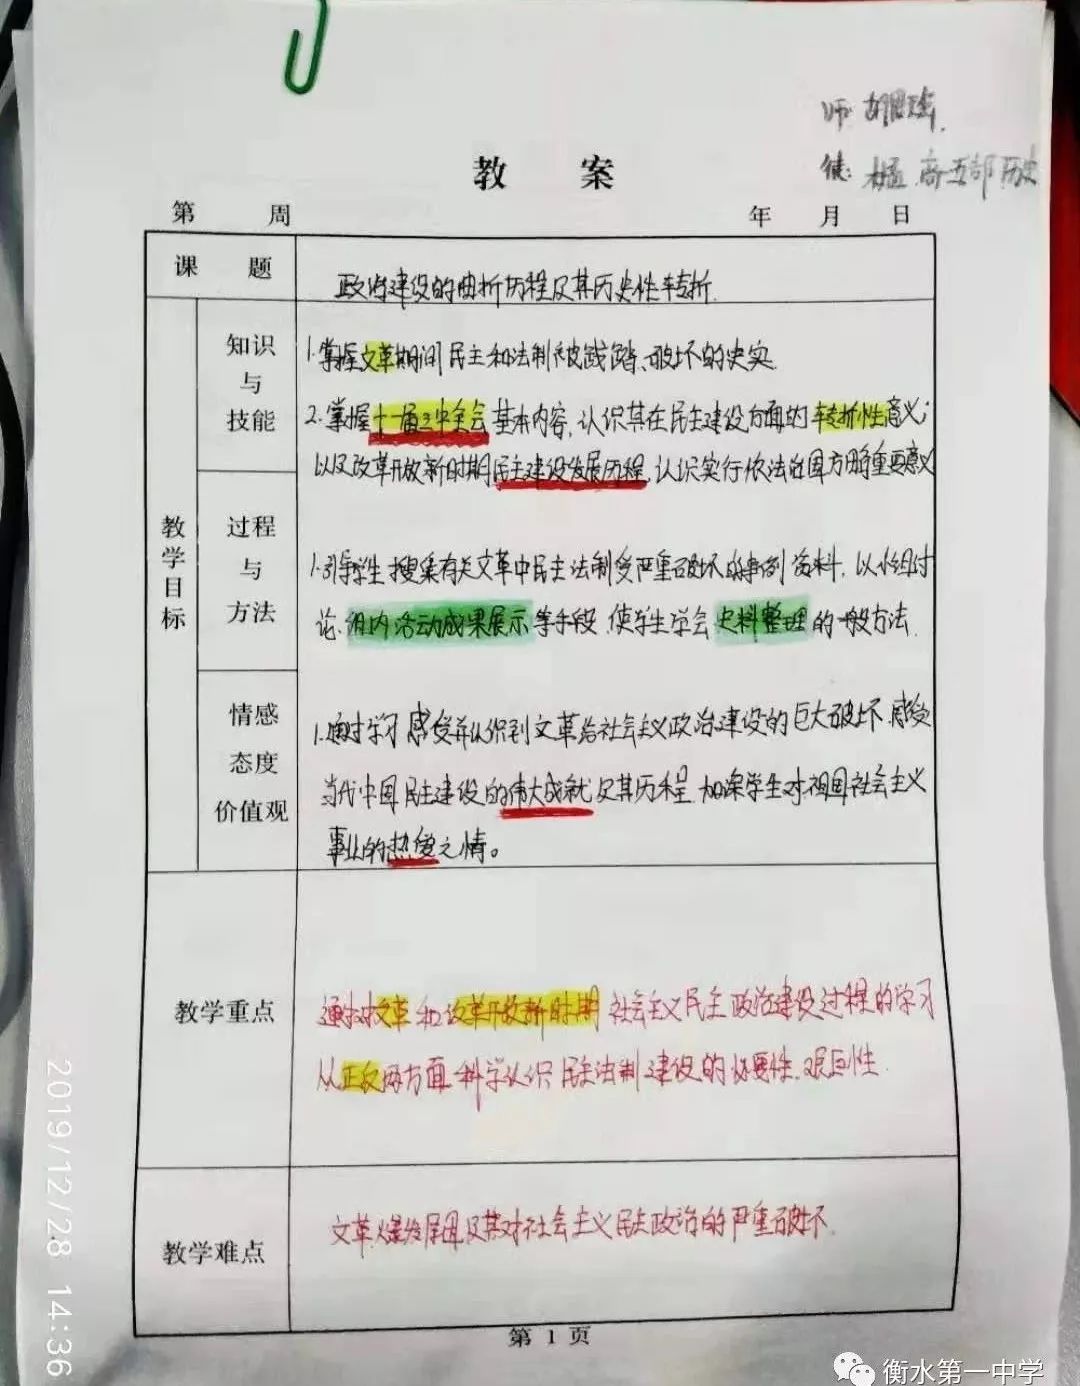 师:胡
徒: 孟 高五部历史
教 案
第 周 年 月 日
课 题
政治建设的曲折历程及其历史性转折.
教学目标
知识
与
技能
1.掌握文革期间民主和法制被践踏、破坏的史实.
2.掌握十一届三中全会基本内容,认识其在民主建设方面的转折性意义;
以及改革开放新时期民主建设发展历程,认识实行依法治国方略重要意义
过程
与
方法
1.引导学生搜集有关文革中民主法制受严重破坏的事例资料,以小组讨
论.组内活动成果展示等手段,使学生学会史料整理的一般方法.
情感
态度
价值观
1.通过学习感受并认识到文革给社会主义政治建设的巨大破坏.感受
当代中国民主建设的伟大成就及其历程,加深学生对祖国社会主义
事业的热爱之情。
教学重点
通过对文革和改革开放新时期社会主义民主政治建设过程的学习
从正反两方面科学认识民主法制建设的必要性、艰巨性.
教学难点
文革爆发原因及其对社会主义民主政治的严重破坏.
第 1 页
2019/12/28 14:36
衡水第一中学